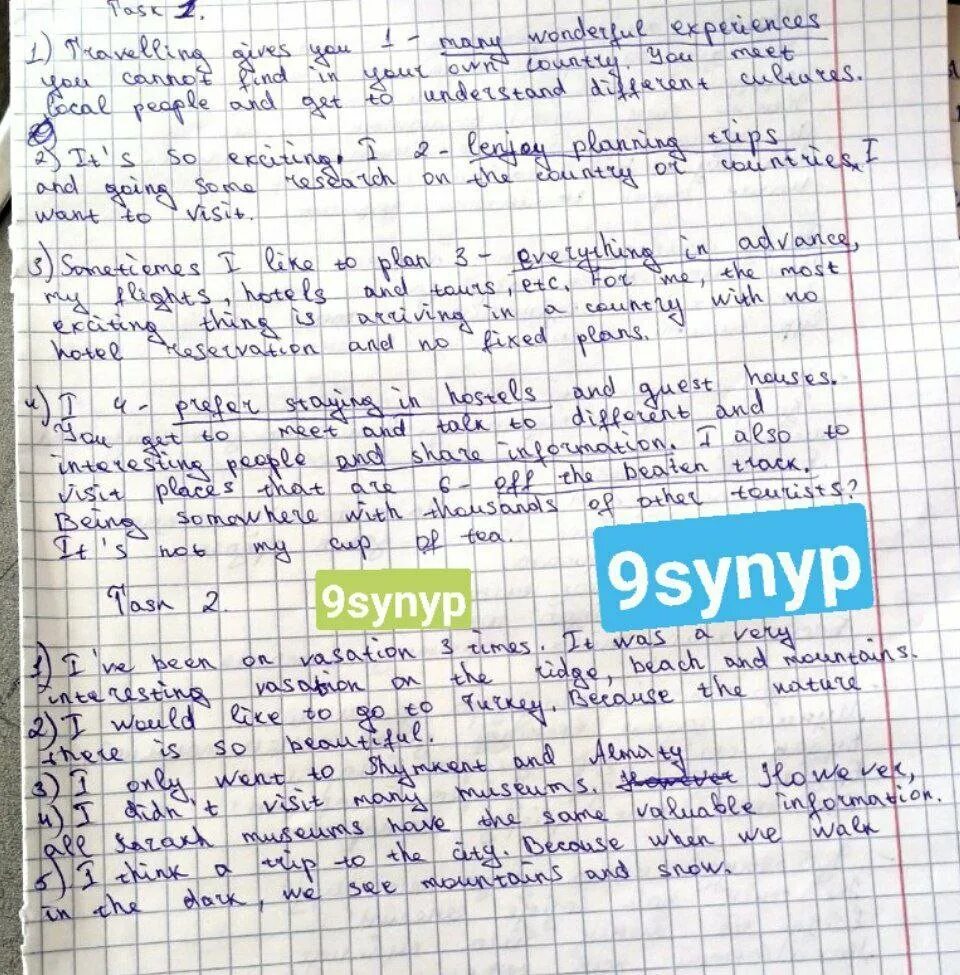 Task 1.
1) Travelling gives you 1 - many wonderful experiences
you cannot find in your own country. You meet
local people and get to understand different cultures.
2) It's so exciting. I 2 - enjoy planning trips
and going some research on the country or countries I
want to visit.
3) Sometiemes I like to plan 3 - everything in advance,
my flights, hotels and tours, etc. For me, the most
exciting thing is arriving in a country with no
hotel reservation and no fixed plans.
4) I 4 - prefer staying in hostels and guest houses.
You get to meet and talk to different and
interesting people and share information. I also to
visit places that are 6 - off the beaten track.
Being somowhere with thousands of other tourists?
It's not my cup of tea.
9synyp
Task 2.
9synyp
1) I've been on vasation 3 times. It was a very
interesting vasation on the ridge, beach and mountains.
2) I would like to go to Turkey. Because the nature
there is so beautiful.
3) I only went to Shymkent and Almaty
4) I didn't visit many museums. However,
all museums have the same valuable information.
5) I think a trip to the city. Because when we walk
in the dark, we see mountains and snow.